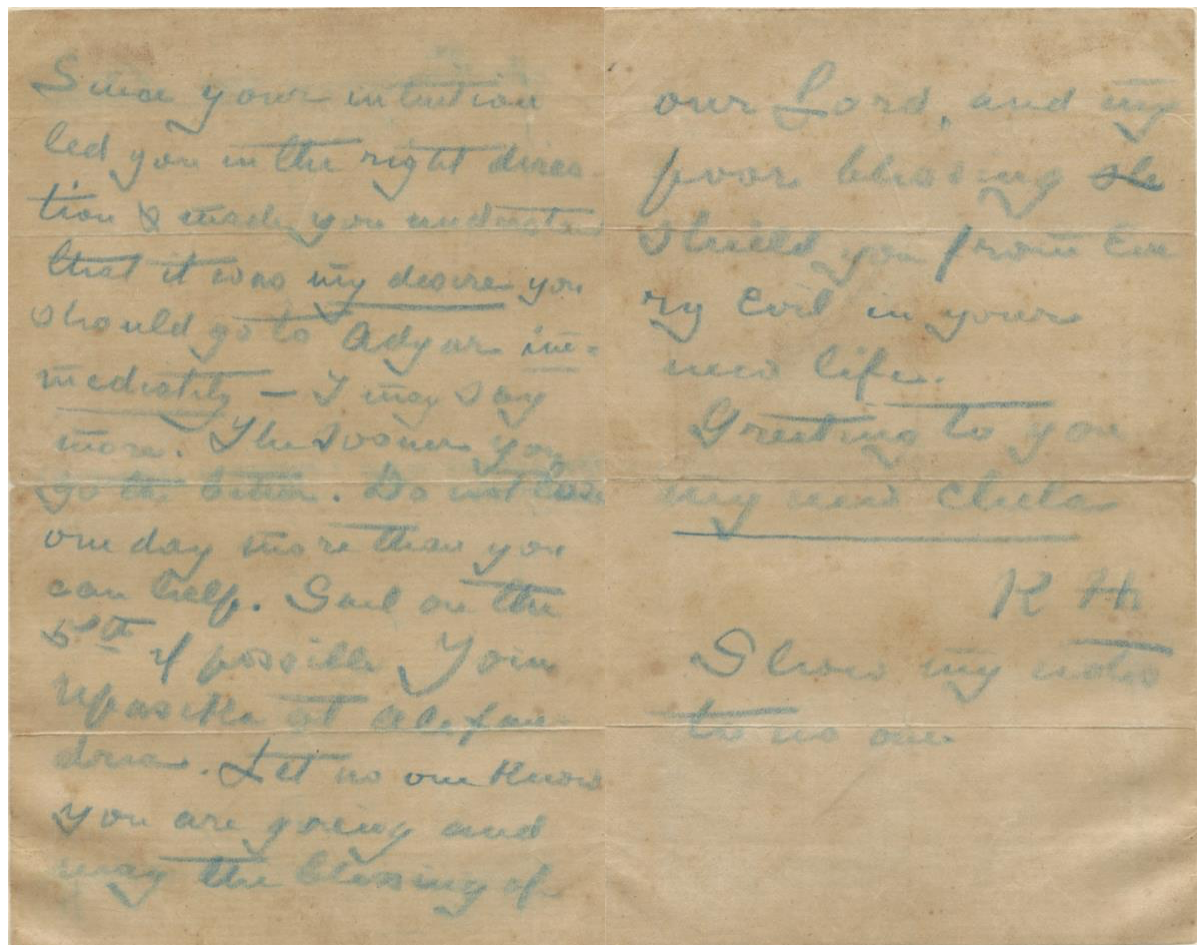 Since your intuition
led you in the right direc
tion & made you understand
that it was my desire you
should go to Adyar im=
mediately — I may say
more. The sooner you
go the better. Do not lose
one day more than you
can help. Sail on the
5th if possible. Join
Upasika at Alexan-
dria. Let no one know
you are going and
may the blessing of
our Lord, and my
poor blessing sh
shield you from Eve
ry Evil in your
new life.
Greeting to you
my new chela
K H
Show my notes
to no one.